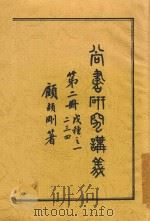 尚書研究講義
第二冊 戊種之一
二三四
顧頡剛著